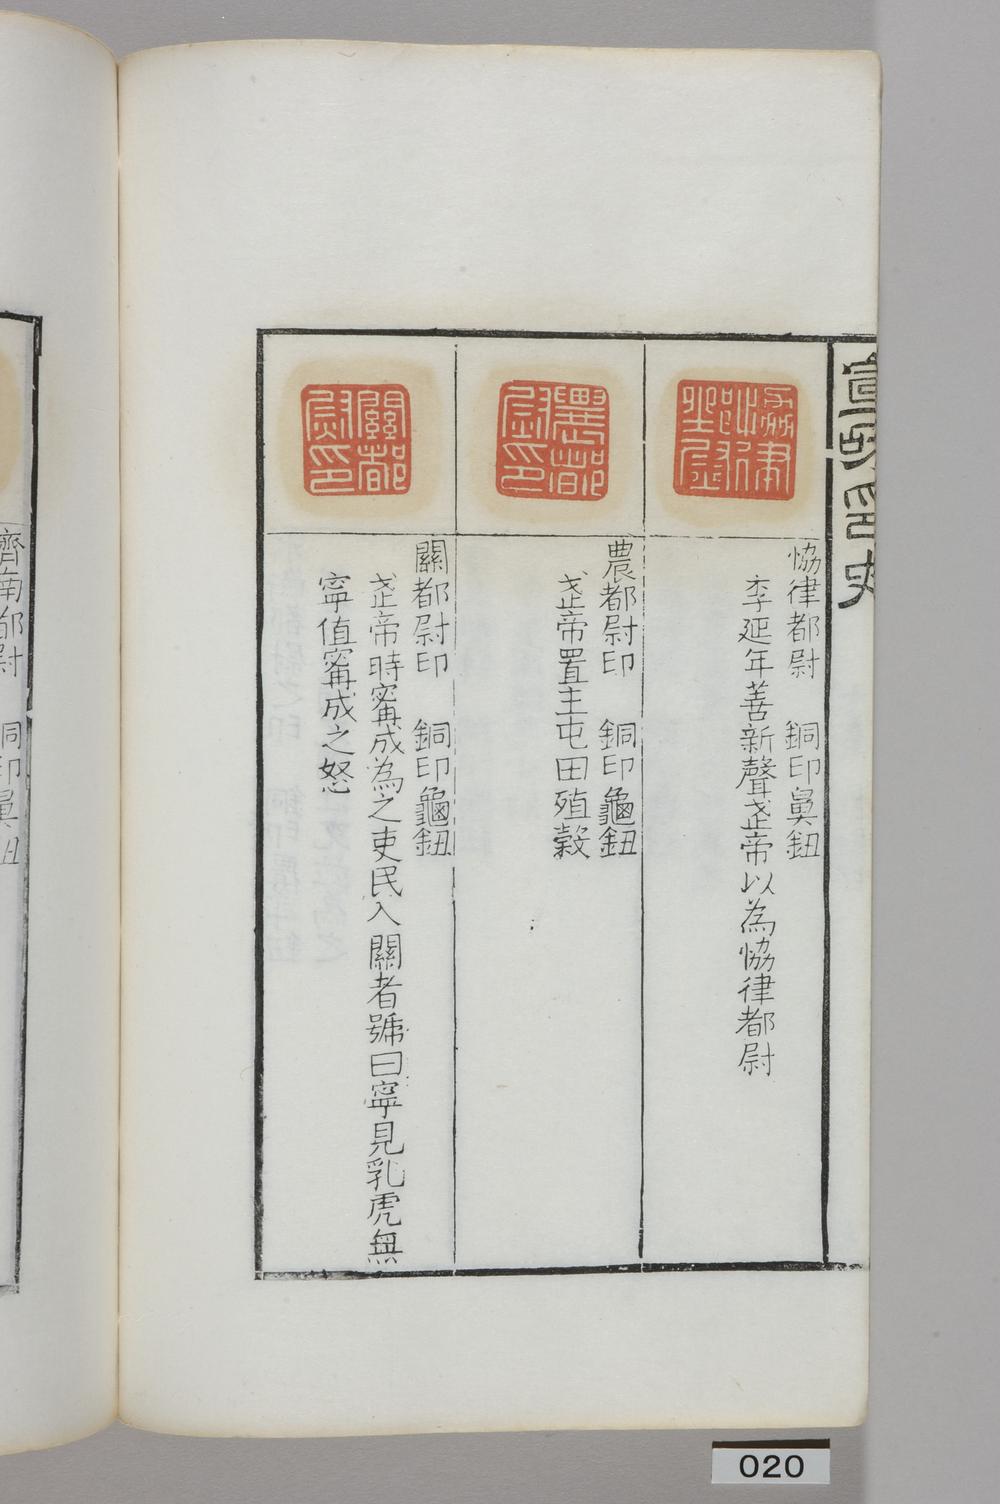 宣和印史
協律都尉
恊律都尉 銅印鼻鈕
李延年善新聲武帝以為恊律都尉
農都尉印
農都尉印 銅印龜鈕
武帝置主屯田殖穀
關都尉印
關都尉印 銅印龜鈕
武帝時甯成為之吏民入關者號曰寧見乳虎無
寧值甯成之怒
濟南都尉 銅印鼻鈕
020